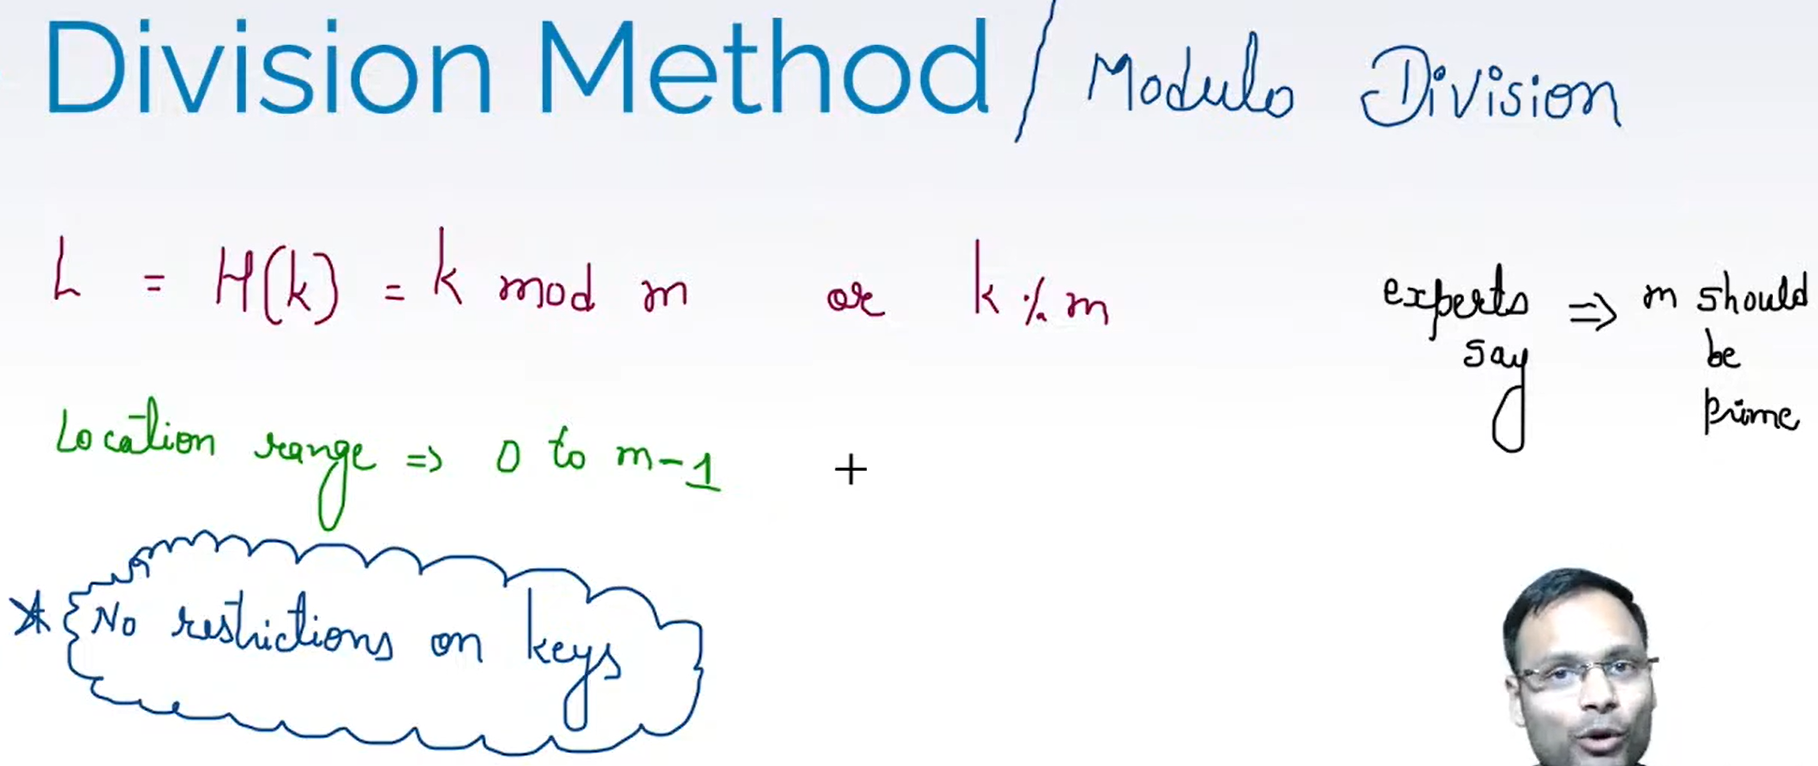 Division Method / Modulo Division
L = H(k) = k mod m or k % m
experts say => m should be prime
Location range => 0 to m-1
* No restrictions on keys